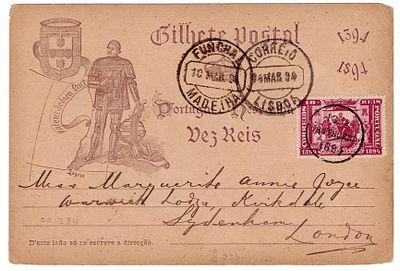 Bilhete Postal
1394
1894
FUNCHAL
10 MAR. 94
MADEIRA
CORREIO
4 MAR 94
LISBOA
Talent de bien faire
Vez Reis
CORREIOS 10 REIS PORTUGAL
1394 1894
1894
Miss Marguerite Annie Joyce
Warwick Lodge, Kirkdale
Sydenham
London
D'este lado só se escreve a direcção.